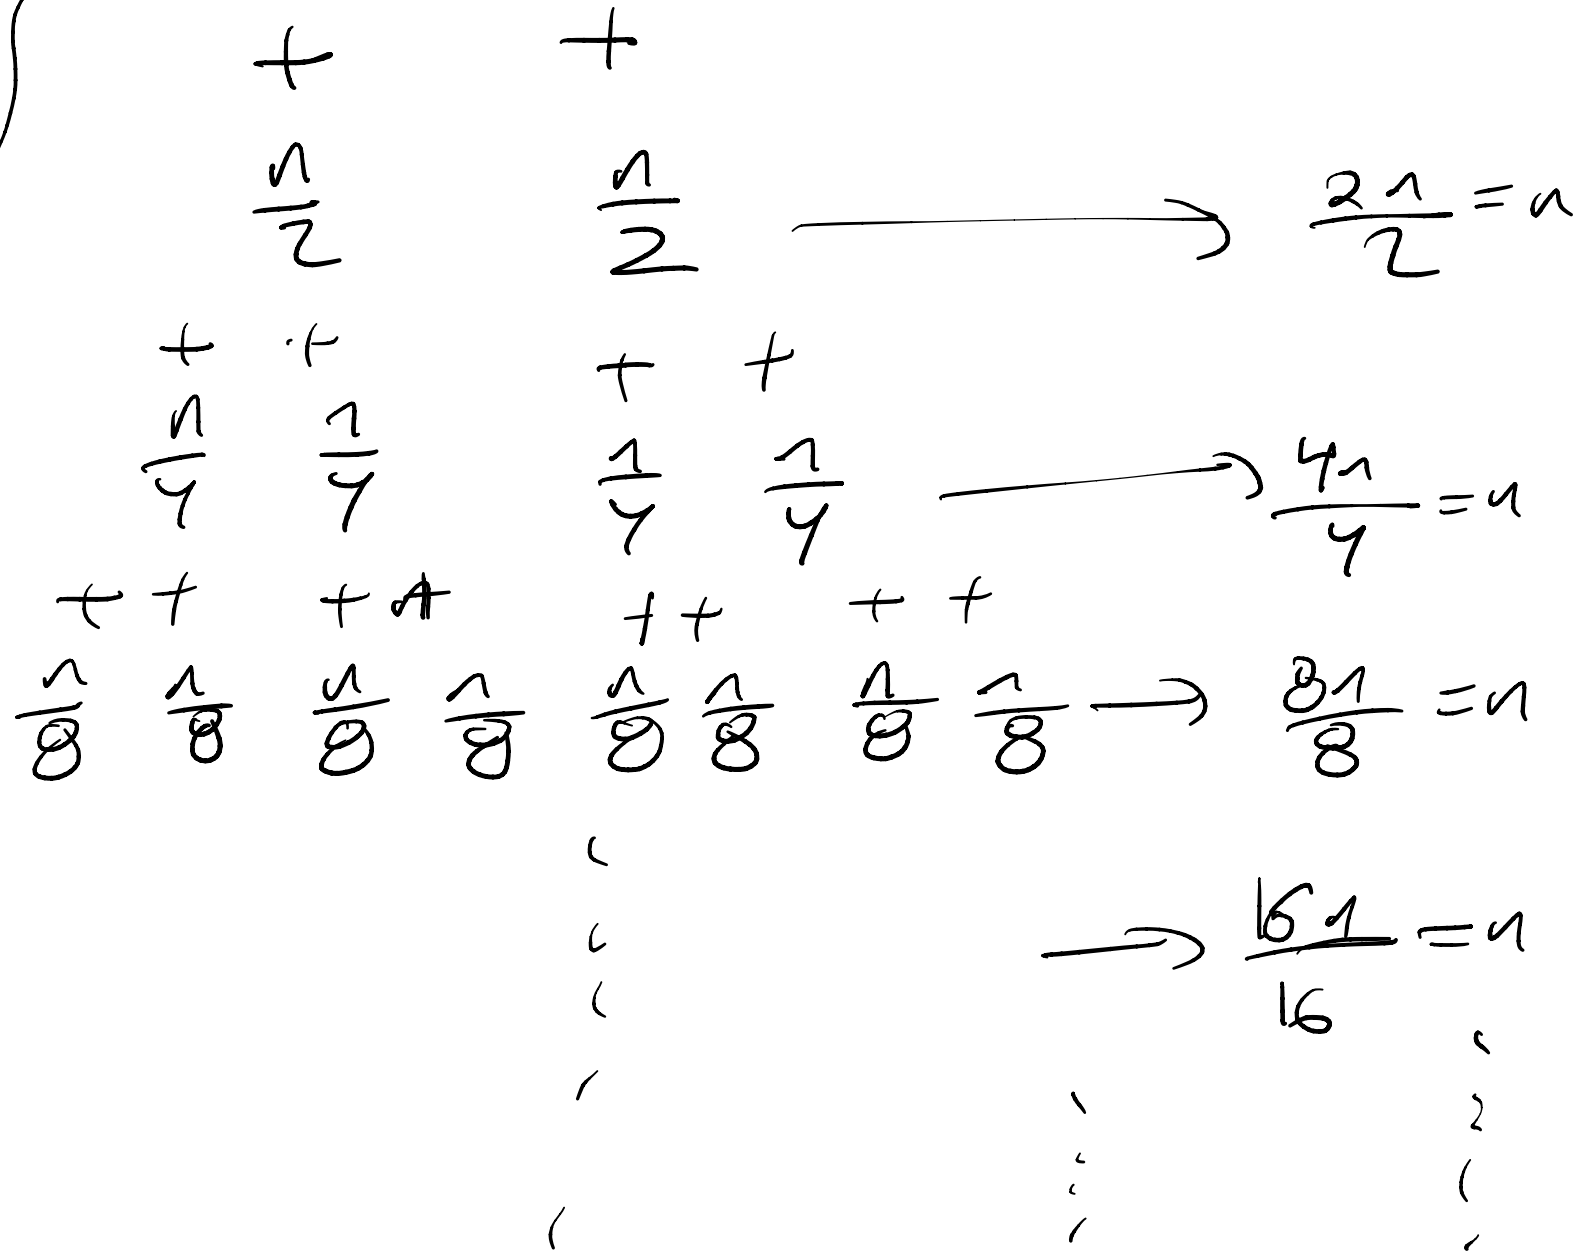 + +
n/2 n/2 → 2n/2 = n
+ + + +
n/4 n/4 n/4 n/4 → 4n/4 = n
+ + + + + + + +
n/8 n/8 n/8 n/8 n/8 n/8 n/8 n/8 → 8n/8 = n
→ 16n/16 = n